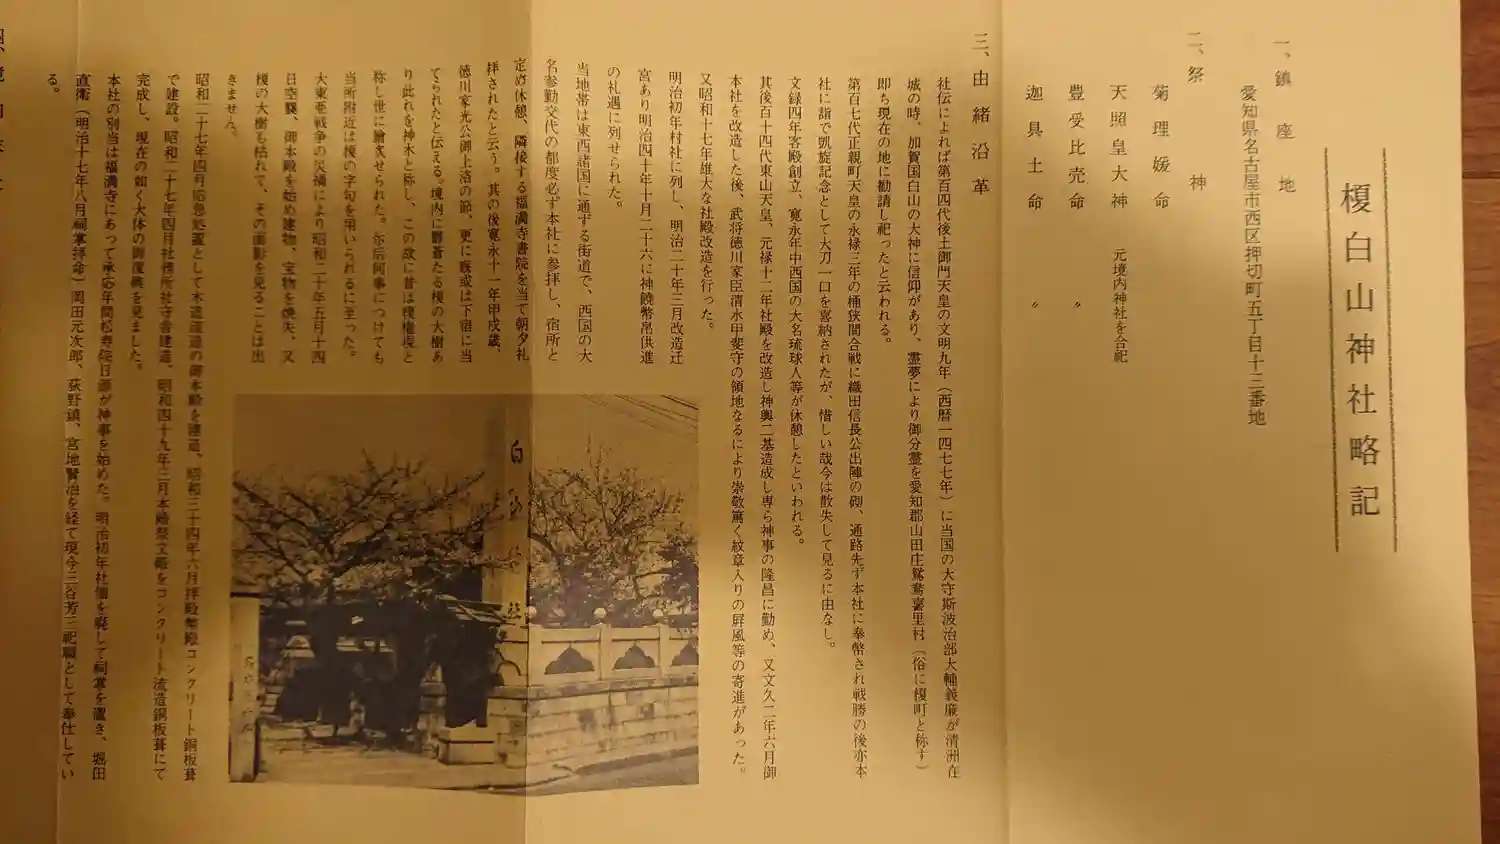 榎白山神社略記
一、鎮座地
愛知県名古屋市西区押切町五丁目十三番地
二、祭神
菊理媛命
天照皇大神 元境内神社を合祀
豊受比売命 〃
迦具土命 〃
三、由緒沿革
社伝によれば第百四代後土御門天皇の文明九年（西暦一四七七年）に当国の大守斯波治部大輔義廉が清洲在
城の時、加賀国白山の大神に信仰があり、霊夢により御分霊を愛知郡山田庄鷲鸞喜里村（俗に榎町と称す）
即ち現在の地に勧請し祀ったと云われる。
第百七代正親町天皇の永禄三年の桶狭間合戦に織田信長公出陣の砌、通路先ず本社に奉幣され戦勝の後亦本
社に詣で凱旋記念として大刀一口を喜納されたが、惜しい哉今は散失して見るに由なし。
文録四年客殿創立、寛永年中西国の大名琉球人等が休憩したといわれる。
其後百十四代東山天皇、元禄十二年社殿を改造し神輿二基造成し専ら神事の隆昌に勤め、又文久二年六月御
本社を改造した後、武将徳川家臣清水甲斐守の領地なるにより崇敬篤く紋章入りの屏風等の寄進があった。
又昭和十七年雄大な社殿改造を行った。
明治初年村社に列し、明治二十年三月改造迁
宮あり明治四十年十月二十六に神饒幣帛供進
の礼遇に列せられた。
当地帯は東西諸国に通ずる街道で、西国の大
名参勤交代の都度必ず本社に参拝し、宿所と
定め休憩、隣接する福満寺書院を当て朝夕礼
拝されたと云う。其の後寛永十一年甲戌歳、
徳川家光公御上洛の節、更に旅或は下宿に当
てられたと伝える。境内に欝蒼たる榎の大樹あ
り此れを神木と称し、この故に昔は榎権現と
称し世に膾炙せられた。尓后何事につけても
当所附近は榎の字句を用いられるに至った。
大東亜戦争の災禍により昭和二十年五月十四
日空襲、御本殿を始め建物、宝物を焼失、又
榎の大樹も枯れて、その面影を見ることは出
きません。
昭和二十七年四月応急処置として木造造の御本殿を建造、昭和三十四年六月拝殿幣殿コンクリート銅板葺
で建設。昭和三十七年四月社務所社守舎建造、昭和四十九年三月本殿祭文殿をコンクリート流造銅板葺にて
完成し、現在の如く大体の御復興を見ました。
本社の別当は福満寺にあって承応年間松寿院日源が神事を始めた。明治初年社僧を廃して祠掌を置き、堀田
直衛（明治十七年八月祠掌拝命）岡田元次郎、荻野鎮、宮地賢治を経て現今三谷芳三祀職として奉仕してい
る。